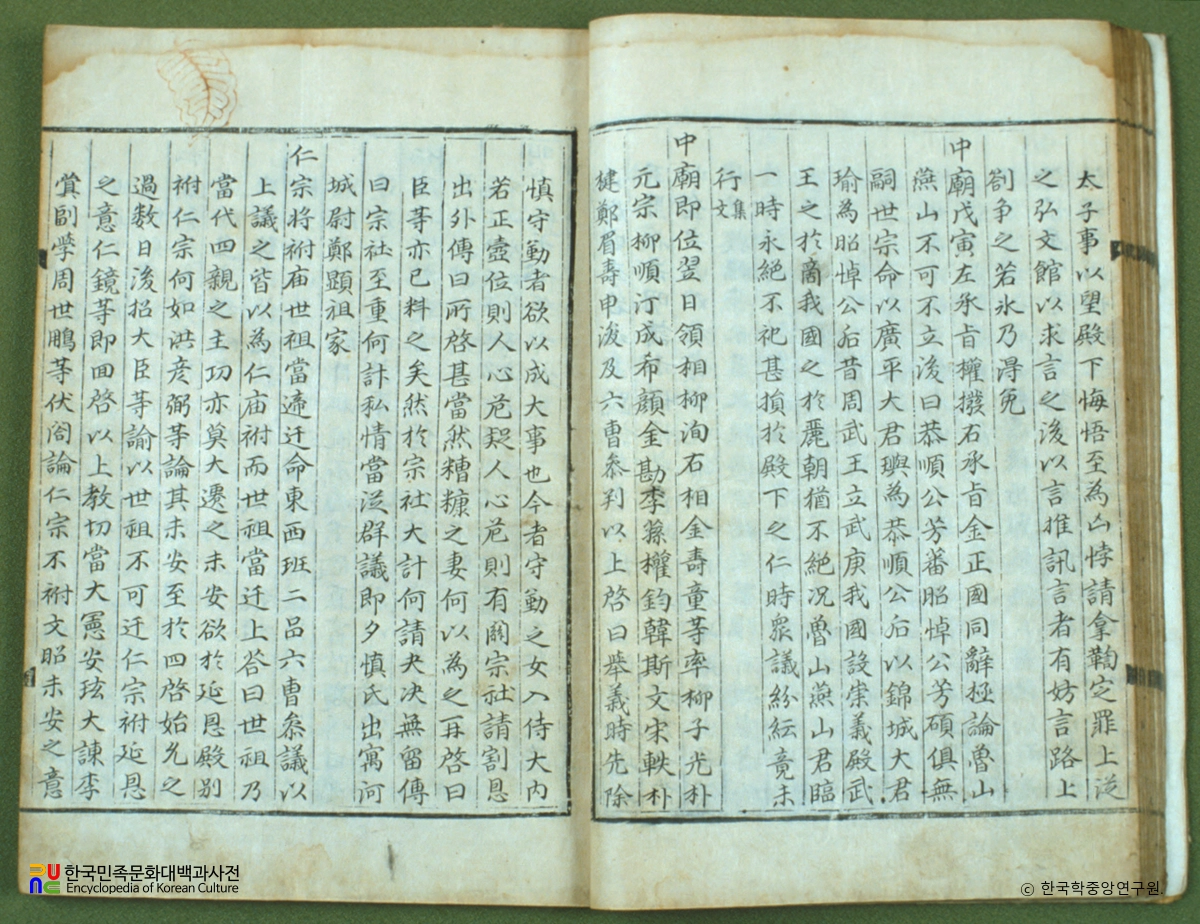 太子事以望殿下悔悟至為凶悖請拿鞫定罪上從
之弘文館以求言之後以言推訊言者有妨言路上
劄争之若氷乃得免
中廟戊寅左承旨權撥右承旨金正國同辭極論魯山
燕山不可不立後曰恭順公芳蕃昭悼公芳碩俱無
嗣世宗命以廣平大君璵為恭順公后以錦城大君
瑜為昭悼公后昔周武王立武庚我國設崇義殿武
王之於商我國之於麗朝猶不絶况魯山燕山君臨
一時永絶不祀甚損於殿下之仁時衆議紛紜竟未
行文集
中廟即位翌日領相柳洵右相金壽童等率柳子光朴
元宗柳順汀成希顔金勘李蓀權鈞韓斯文宋軼朴
楗鄭眉壽申浚及六曹叅判以上啓曰擧義時先除
慎守勤者欲以成大事也今者守勤之女入侍大内
若正壼位則人心危疑人心危則有關宗社請割恩
出外傳曰所啓甚當然糟糠之妻何以為之再啓曰
臣等亦已料之矣然於宗社大計何請夬决無留傳
曰宗社至重何計私情當從群議即夕慎氏出寓河
城尉鄭顯祖家
仁宗將祔庙世祖當遞迁命東西班二品六曹叅議以
上議之皆以為仁庙祔而世祖當迁上答曰世祖乃
當代四親之主功亦莫大遷之未安欲於延恩殿别
祔仁宗何如洪彦弼等論其未安至於四啓始允之
過数日後招大臣等諭以世祖不可迁仁宗祔延恩
之意仁鏡等即回啓以上教切當大憲安玹大諫李
蓂副學周世鵬等伏閤論仁宗不祔文昭未安之意
한국민족문화대백과사전
Encyclopedia of Korean Culture
© 한국학중앙연구원